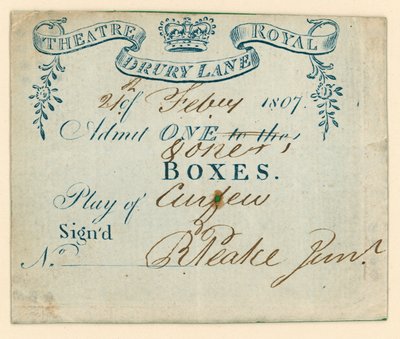 THEATRE ROYAL
DRURY LANE
21th of Febry 1807.
Admit ONE to the
Boxes
BOXES.
Play of Curfew
Sign'd
No. R Peake Junr.